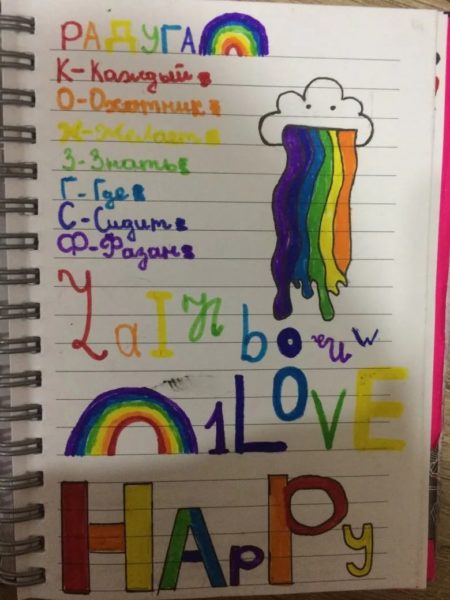 РАДУГА
К-Каждый
О-Охотник
Ж-Желает
З-Знать
Г-Где
С-Сидит
Ф-Фазан
1LOVE
HAppy